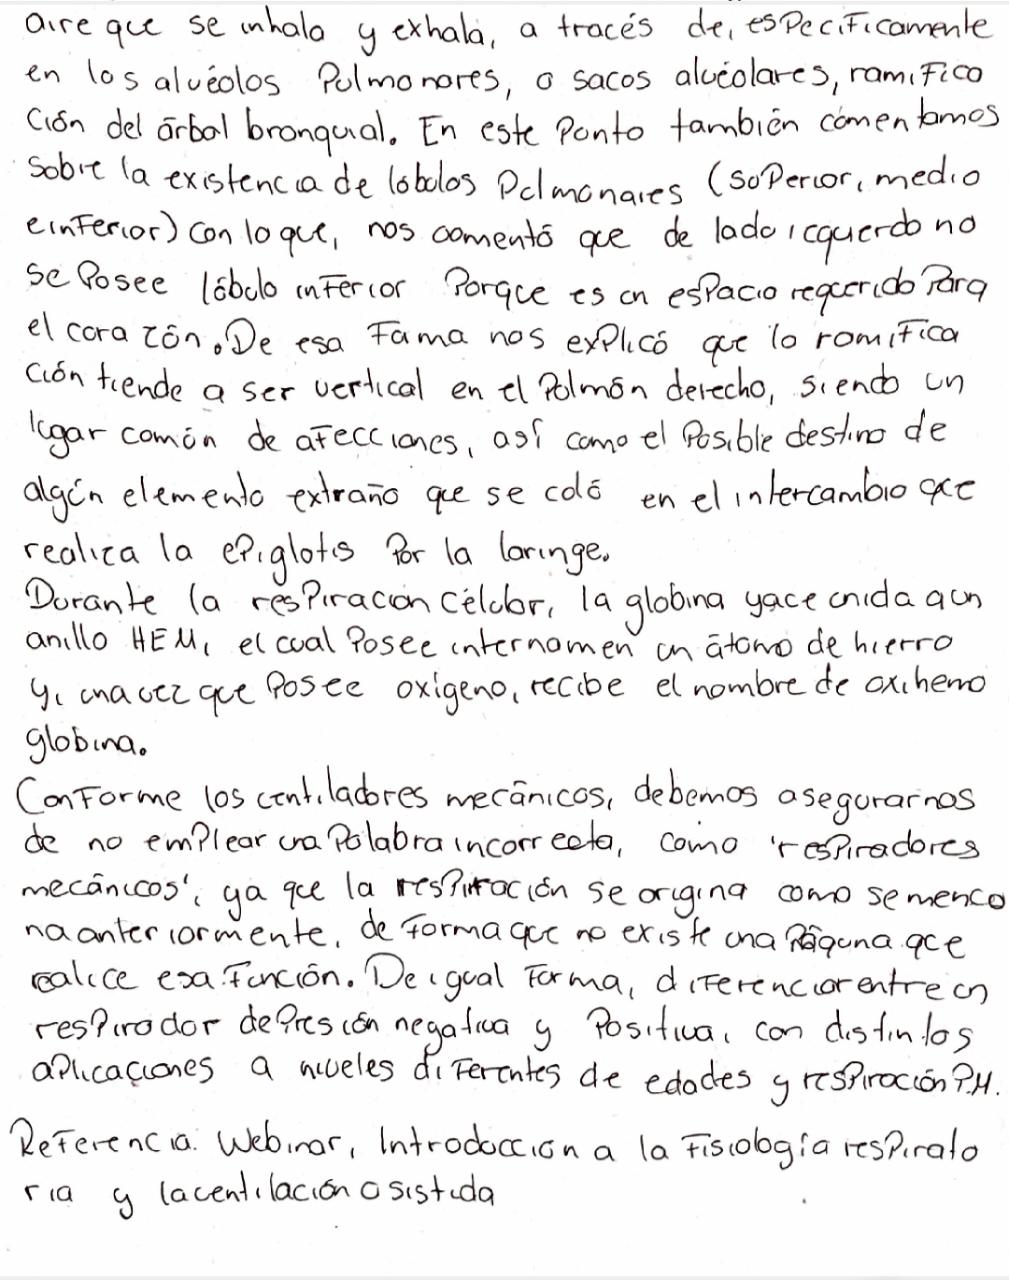 aire que se inhala y exhala, a través de, especificamente
en los alvéolos Pulmonares, o sacos alvéolares, ramifica
ción del árbol bronquial. En este Punto también comentamos
sobre la existencia de lóbulos Pulmonares (superior, medio
e inferior) con lo que, nos comentó que de lado izquierdo no
se Posee lóbulo inferior Porque es un espacio requerido Para
el corazón. De esa Forma nos explicó que la ramifica
ción tiende a ser vertical en el Pulmón derecho, siendo un
lugar común de afecciones, así como el Posible destino de
algún elemento extraño que se coló en el intercambio que
realiza la epiglotis Por la laringe.
Durante la respiración célular, la globina yace unida a un
anillo HEM, el cual Posee internamen un átomo de hierro
y, una vez que Posee oxígeno, recibe el nombre de oxihemo
globina.
Conforme los ventiladores mecánicos, debemos asegurarnos
de no emplear una Palabra incorrecta, como 'respiradores
mecánicos', ya que la respiración se origina como se mencio
na anteriormente, de forma que no existe una máquina que
realice esa función. De igual Forma, diferenciar entre un
respirador de Presión negativa y Positiva, con distintos
aplicaciones a niveles diferentes de edades y respiración P.H.
Referencia: Webinar, Introducción a la Fisiología respirato
ria y la ventilación asistida